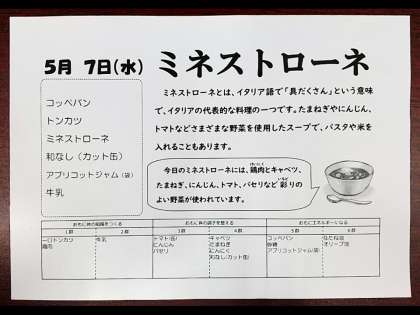 5月 7日(水) ミネストローネ
コッペパン
トンカツ
ミネストローネ
和なし（カット缶）
アプリコットジャム（袋）
牛乳
ミネストローネとは、イタリア語で「具だくさん」という意味
で、イタリアの代表的な料理の一つです。たまねぎやにんじん、
トマトなどさまざまな野菜を使用したスープで、パスタや米を
入れることもあります。
今日のミネストローネには、鶏肉とキャベツ、
たまねぎ、にんじん、トマト、パセリなど彩りの
よい野菜が使われています。
おもに体の組織をつくる おもに体の調子を整える おもにエネルギーになる
1群 2群 3群 4群 5群 6群
一口トンカツ 牛乳 トマト(缶) キャベツ コッペパン なたね油
鶏肉 にんじん たまねぎ 砂糖 オリーブ油
パセリ にんにく アプリコットジャム(袋)
和なし(カット缶)